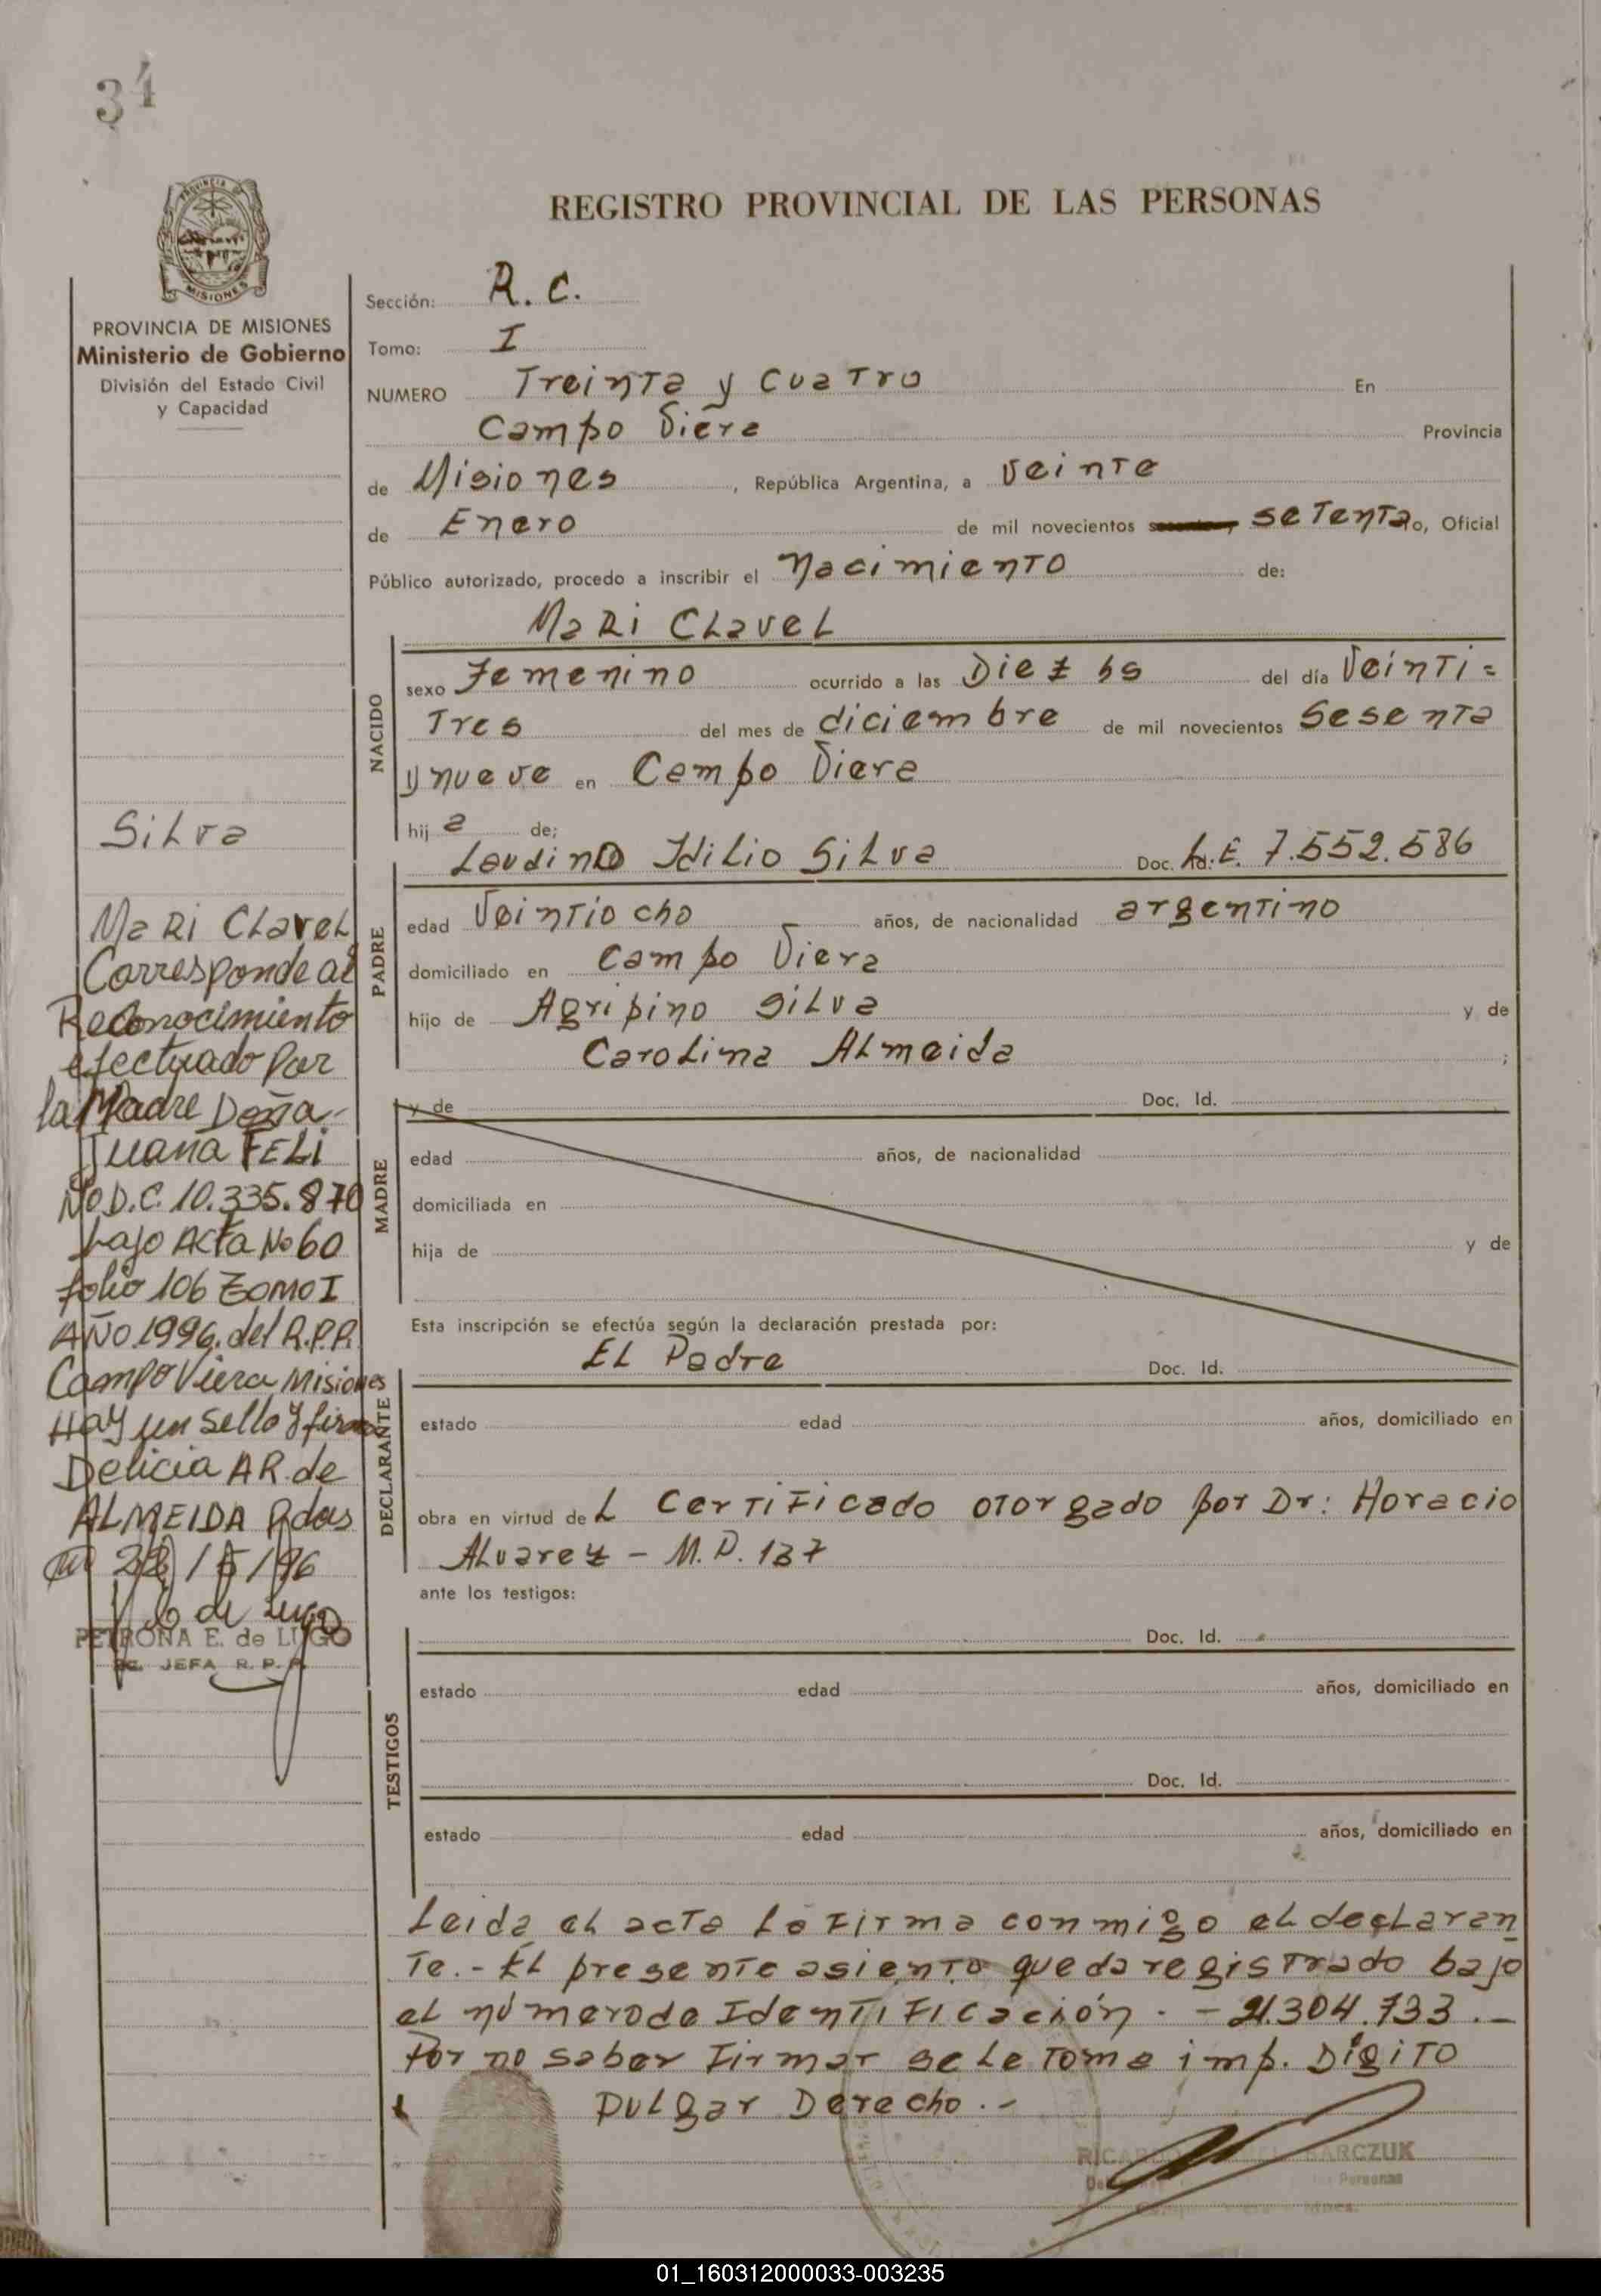 34
PROVINCIA DE
MISIONES
REGISTRO PROVINCIAL DE LAS PERSONAS
PROVINCIA DE MISIONES
Ministerio de Gobierno
División del Estado Civil
y Capacidad
Silva
Mari Clavel
Corresponde al
Reconocimiento
efectuado por
la Madre Doña
Juana FELI
No D.C. 10.335.870
bajo Acta No 60
folio 106 Tomo I
AÑO 1996. del R.P.P.
Campo Viera Misiones
Hay un sello y firma
Delicia AR. de
ALMEIDA Pdas
28/5/96
PETRONA E. de LUGO
JEFA R. P. P.
Sección: R. C.
Tomo: I
NUMERO Treinta y cuatro En
Campo Viera Provincia
de Misiones, República Argentina, a veinte
de Enero de mil novecientos setenta o, Oficial
Público autorizado, procedo a inscribir el Nacimiento de:
Mari Clavel
NACIDO
sexo Femenino ocurrido a las Diez hs del día Veinti=
Tres del mes de diciembre de mil novecientos Sesenta
y nueve en Campo Viera
hij a de;
Laudino Idilio Silva Doc. Id. L.E. 7.552.586
PADRE
edad Veintiocho años, de nacionalidad argentino
domiciliado en Campo Viera
hijo de Agripino Silva y de
Carolina Almeida ;
MADRE
y de Doc. Id.
edad años, de nacionalidad
domiciliada en
hija de y de
Esta inscripción se efectúa según la declaración prestada por:
El Padre Doc. Id.
DECLARANTE
estado edad años, domiciliado en
obra en virtud de L Certificado otorgado por Dr: Horacio
Alvarez - M.P. 137
ante los testigos:
TESTIGOS
Doc. Id.
estado edad años, domiciliado en
Doc. Id.
estado edad años, domiciliado en
Leida el acta la firma conmigo el declaran
te.- El presente asiento queda registrado bajo
el número de Identificación. - 21.304.733.-
Por no saber firmar se le toma imp. Dígito
Pulgar Derecho.-
BARCZUK
Personas
01_160312000033-003235